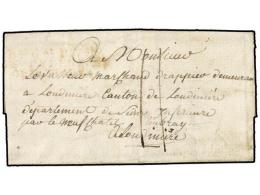 A Monsieur
Marchand drappier demeurant
a Londiniere Canton de Londiniere
departement de Seine Inferieure
par le Neufchatel en bray
a Londiniere